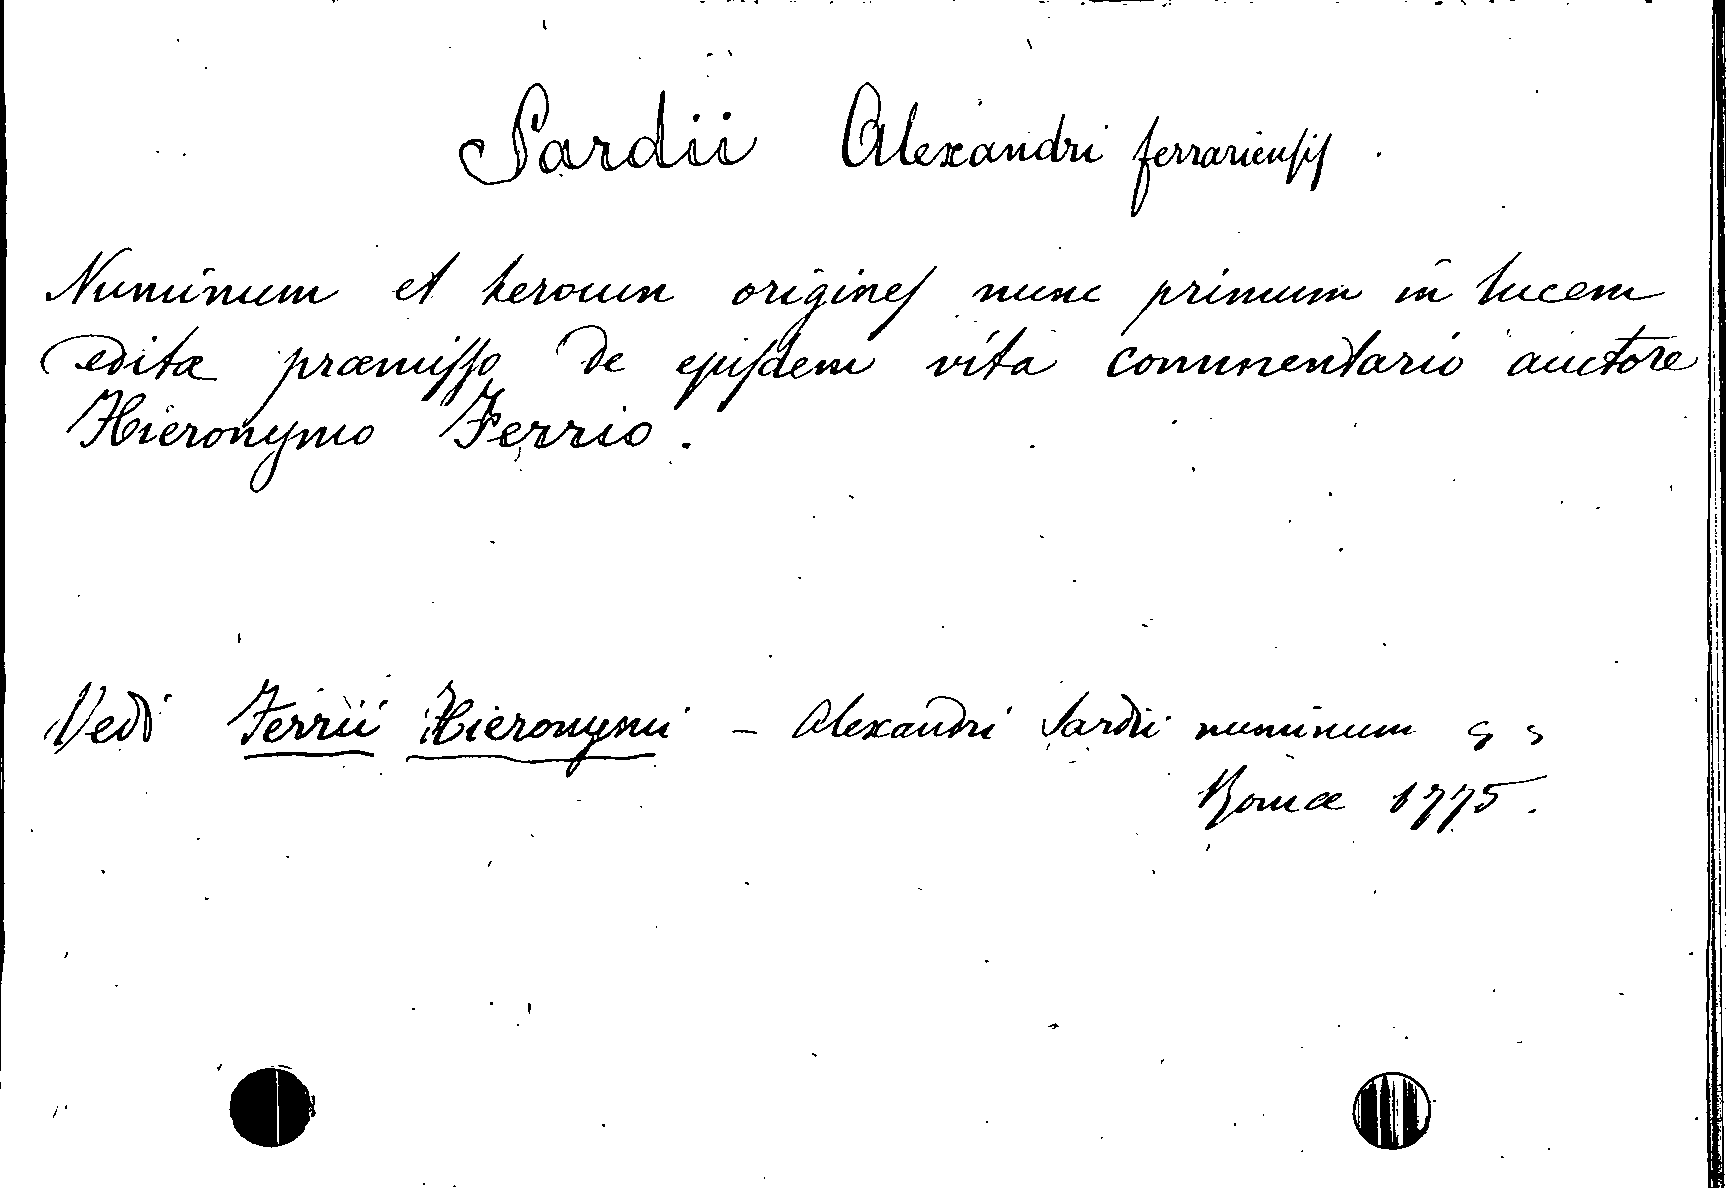 Sardii Alexandri ferrariensis.
Numinum et heroum origines nunc primum in lucem
editæ præmisso de ejusdem vita commentario auctore
Hieronymo Ferrio.
Vedi Ferrii Hieronymi - Alexandri Sardii numinum
Romæ 1775.